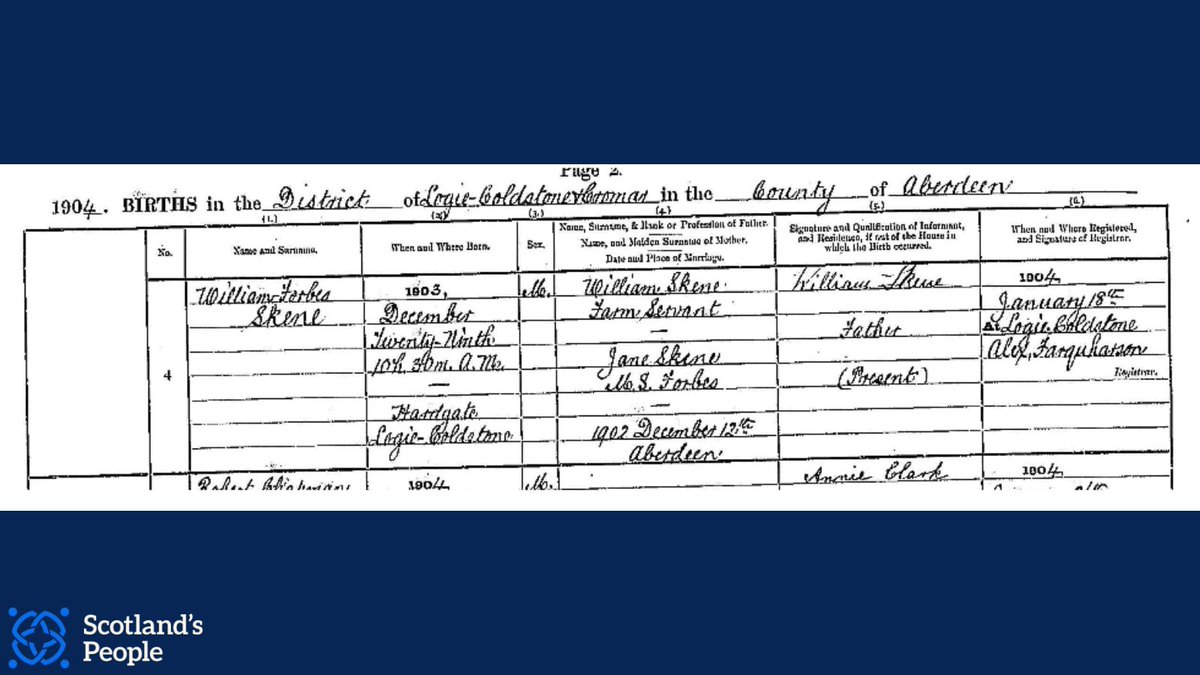 Page 2.
1904. BIRTHS in the District of Logie-Coldstone & Cromar in the County of Aberdeen
(1.) (2.) (3.) (4.) (5.) (6.)
No.
Name and Surname.
When and Where Born.
Sex.
Name, Surname, & Rank or Profession of Father.
Name, and Maiden Surname of Mother.
Date and Place of Marriage.
Signature and Qualification of Informant,
and Residence, if out of the House in
which the Birth occurred.
When and Where Registered,
and Signature of Registrar.
4
William Forbes
Skene
1903,
December
Twenty-Ninth
10h. 30m. A.M.
—
Hardgate
Logie-Coldstone
M.
William Skene
Farm Servant
—
Jane Skene
M.S. Forbes
—
1902 December 12th
Aberdeen
William Skene
Father
(Present)
1904
January 18th
At Logie Coldstone
Alex. Farquharson
Registrar.
Robert
1904
M.
Annie Clark
1904
Scotland's
People